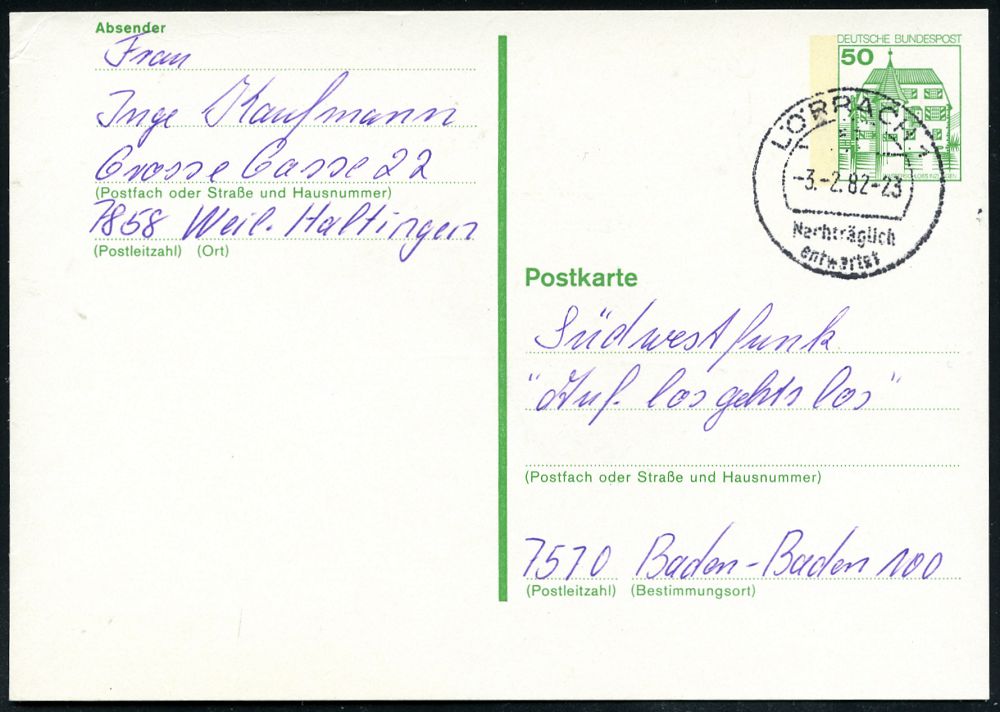 Absender
Frau
Inge Kaufmann
Grosse Gasse 22
(Postfach oder Straße und Hausnummer)
7858 Weil-Haltingen
(Postleitzahl) (Ort)
DEUTSCHE BUNDESPOST
50
LÖRRACH 1
-3.-2.82-23
Nachträglich
entwertet
Postkarte
Südwestfunk
"Auf. los gehts los"
(Postfach oder Straße und Hausnummer)
7570 Baden-Baden 100
(Postleitzahl) (Bestimmungsort)